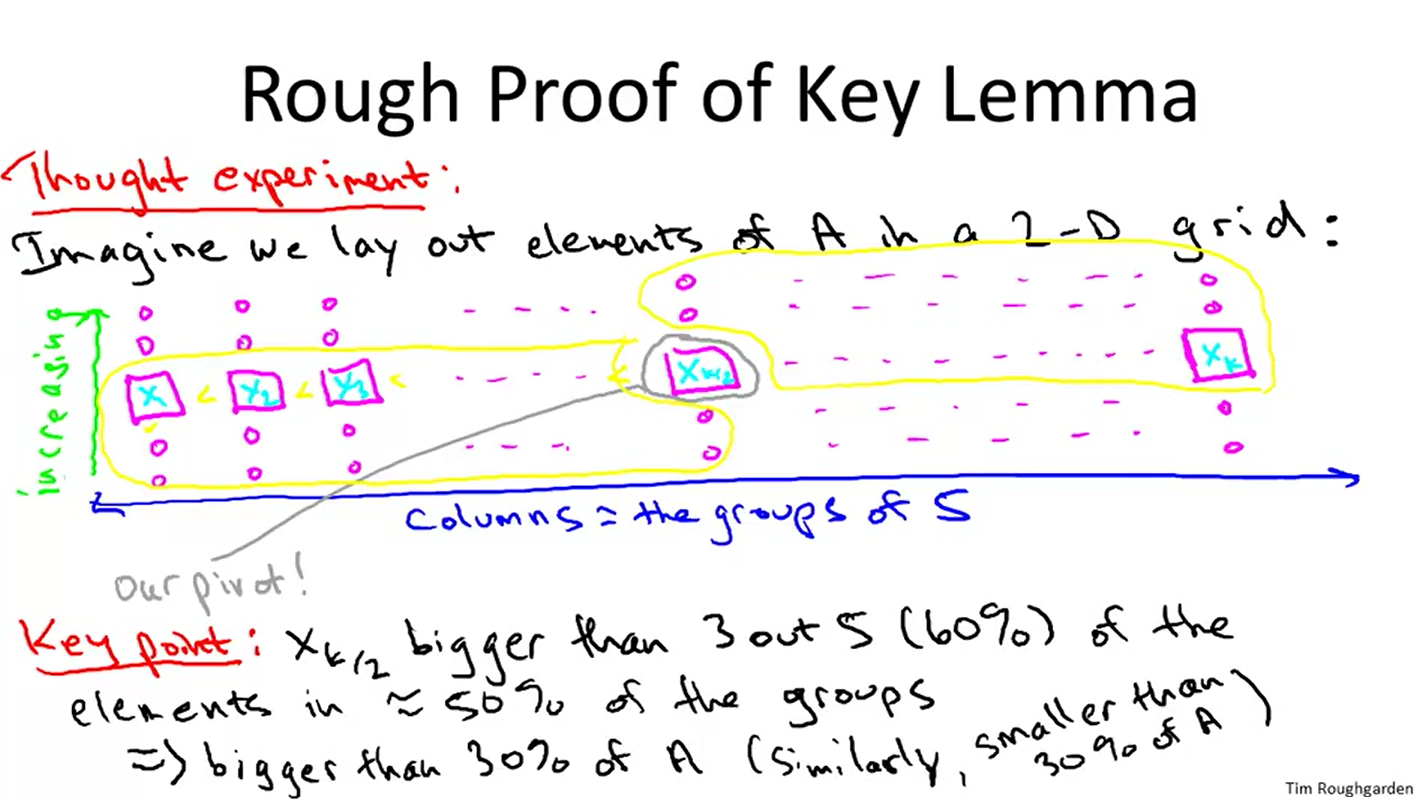 Rough Proof of Key Lemma
Thought experiment:
Imagine we lay out elements of A in a 2-D grid:
increasing
x1 < x2 < x3 < < xk/2 xk
columns = the groups of 5
our pivot!
Key point: xk/2 bigger than 3 out 5 (60%) of the
elements in ≈ 50% of the groups
=> bigger than 30% of A (similarly, smaller than
30% of A)
Tim Roughgarden